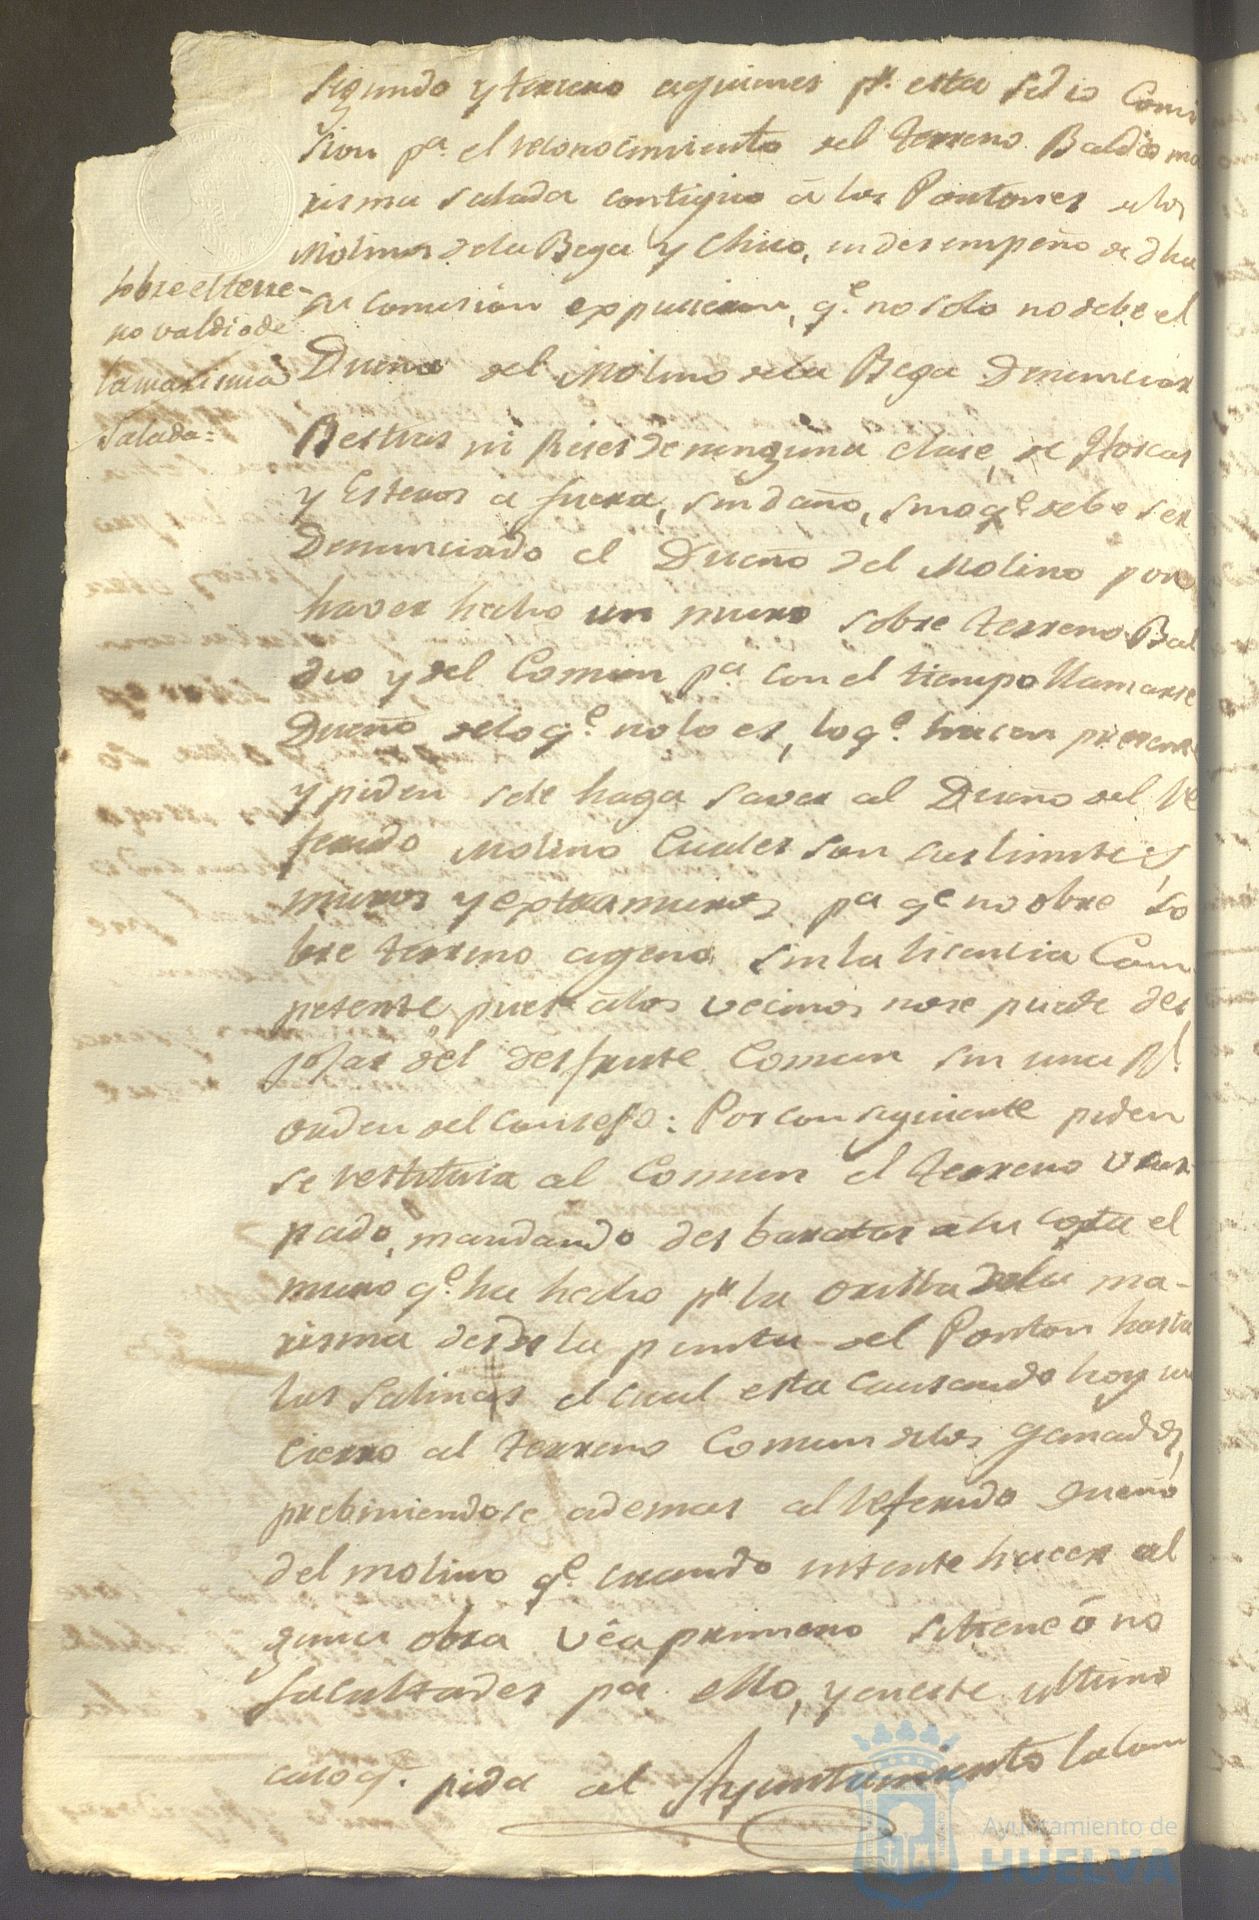 Segundo y tersero aquienes pr. esta se dio Comi
sion pa. el reconocimiento del terreno Baldio ma
risma salada contiguo á los Pontones de los
Molinos de la Bega y Chico, en desempeño de dha
su comision expusieron, qe. no solo no debe el
Dueño del Molino de la Bega Denunciar
Bestias ni Reses de ninguna clase, de
y Esteros a fuera, sin daño, sino qe. debe ser
Denunciado el Dueño del Molino por
haver hecho un muro sobre terreno Bal
dio y del Comun pa. con el tiempo llamarse
Dueño de lo qe. no lo es, lo qe. hacen presente
y piden se le haga saver al Dueño del Re
ferido Molino Cuales son sus limites,
muros y extramuros pa qe no obre so
bre terreno ageno sin la licencia Com
petente, pues a los vecinos no se puede des
pojar del desfrute Comun sin una Rl.
orden del Consejo: Por consiguiente piden
se restituia al Comun el terreno usur
pado, mandando desbaratar a su costa el
muro qe. ha hecho pr la orilla de la ma-
risma desde la punta del Ponton hasta
las Salinas el cual esta causando hoy un
cierro al terreno Comun de los ganados,
prebiniendose ademas al referido Dueño
del molino qe. cuando intente hacer al
guna obra véa primero si tiene ó no
facultades pa. ello, y en este ultimo
caso qe. pida al Ayuntamiento la com
Sobre el terre-
no valdio de
la marisma
Salada=
Ayuntamiento de
HUELVA